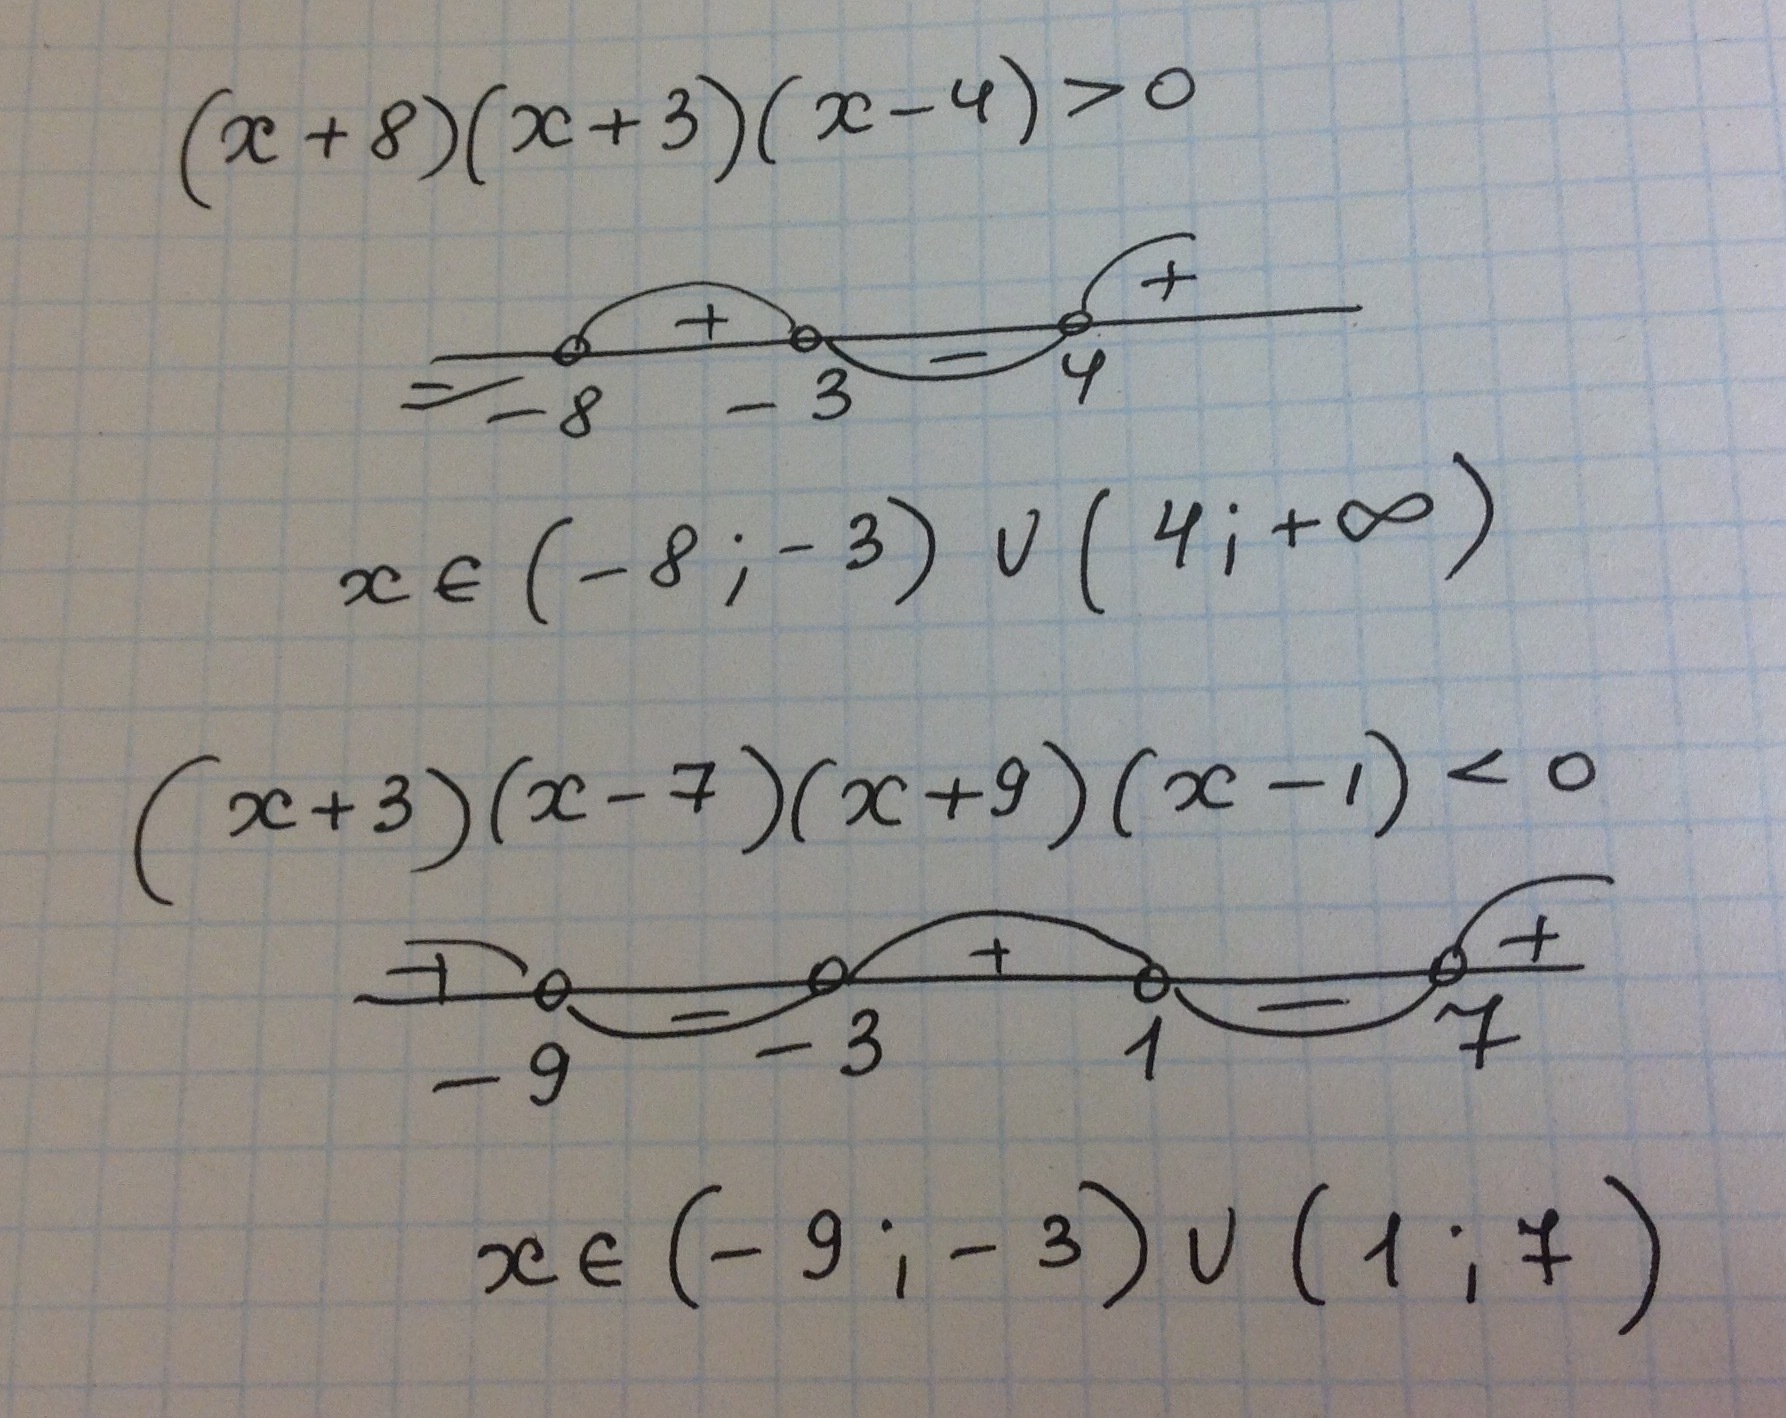 (x+8)(x+3)(x-4)>0
+ - +
- -8 -3 4
x∈(-8;-3)∪(4;+∞)
(x+3)(x-7)(x+9)(x-1)<0
+ - + - +
-9 -3 1 7
x∈(-9;-3)∪(1;7)